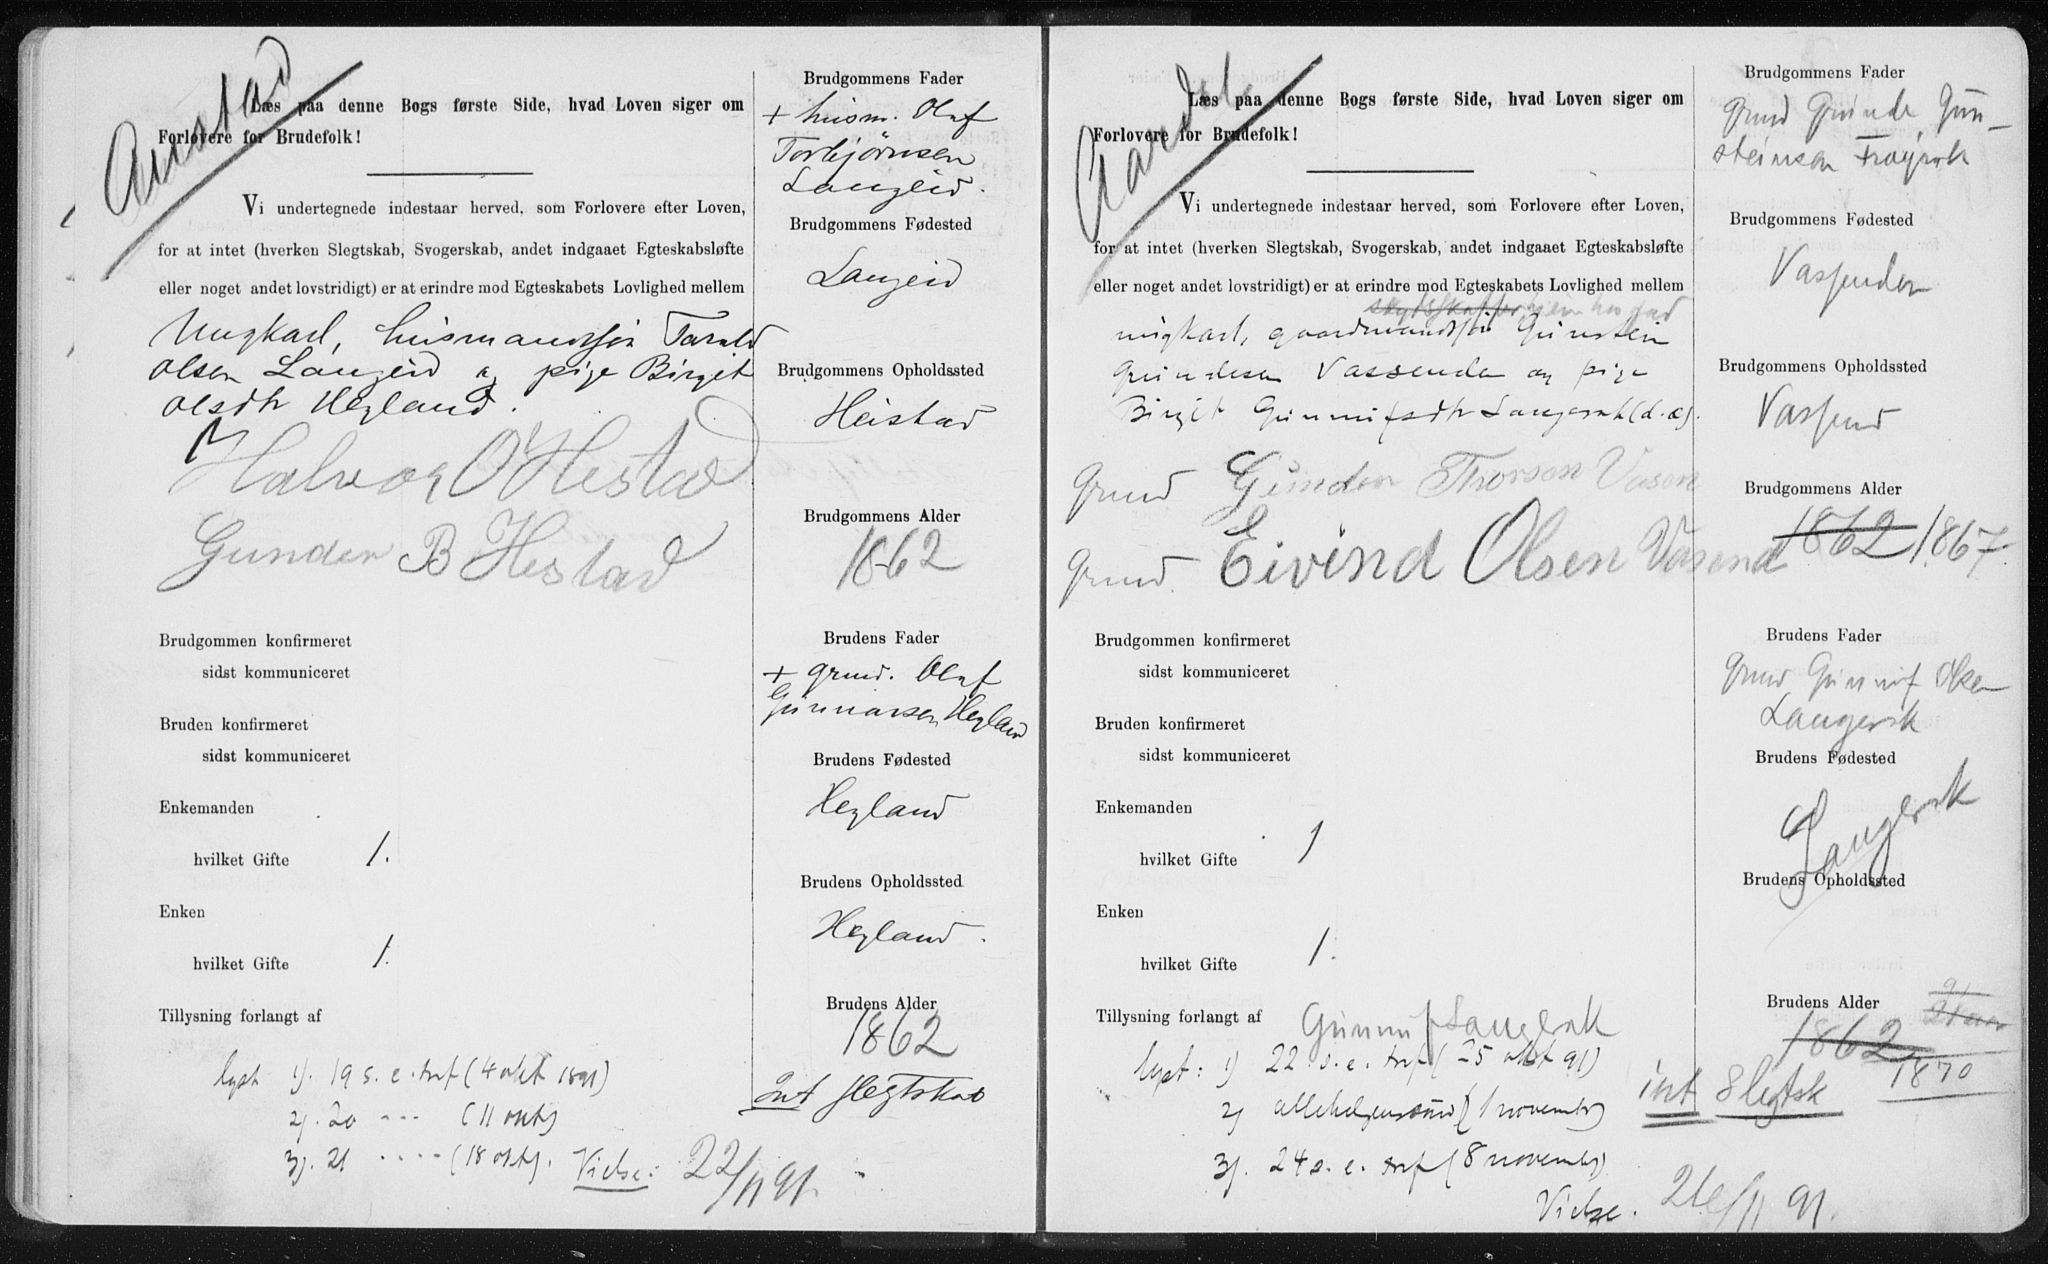 Austad
Læs paa denne Bogs første Side, hvad Loven siger om
Forlovere for Brudefolk!
Vi undertegnede indestaar herved, som Forlovere efter Loven,
for at intet (hverken Slegtskab, Svogerskab, andet indgaaet Egteskabsløfte
eller noget andet lovstridigt) er at erindre mod Egteskabets Lovlighed mellem
Ungkarl, husmandssøn Tarald
Olsen Langeid og pige Birgit
Olsdtr Hegland.
Halvor O Hestad
Gunder B Hestad
Brudgommen konfirmeret
sidst kommuniceret
Bruden konfirmeret
sidst kommuniceret
Enkemanden
hvilket Gifte 1.
Enken
hvilket Gifte 1.
Tillysning forlangt af
lyst 1). 19 s. e. tref (4 okt 1891)
2). 20 " " " (11 okt)
3). 21 " " " " (18 okt). Vielse: 22/11 91.
Brudgommens Fader
+ husm. Olaf
Torbjørnsen
Langeid.
Brudgommens Fødested
Langeid
Brudgommens Opholdssted
Heistad
Brudgommens Alder
1862
Brudens Fader
+ grund. Olaf
Gunnarsen Hegland
Brudens Fødested
Hegland
Brudens Opholdssted
Hegland.
Brudens Alder
1862
Int slegtskab
Læs paa denne Bogs første Side, hvad Loven siger om
Forlovere for Brudefolk!
Vi undertegnede indestaar herved, som Forlovere efter Loven,
for at intet (hverken Slegtskab, Svogerskab, andet indgaaet Egteskabsløfte
eller noget andet lovstridigt) er at erindre mod Egteskabets Lovlighed mellem
ungkarl, gaardmandssøn Gunstein
Grundesen Vassenden og pige
Birgit Gunnufsdtr Langerak (d. æ).
Grund Gunder Thorson Vasen
Grund. Eivind Olsen Vasend
Brudgommen konfirmeret
sidst kommuniceret
Bruden konfirmeret
sidst kommuniceret
Enkemanden
hvilket Gifte 1
Enken
hvilket Gifte 1.
Tillysning forlangt af Gunnuf Langerak
lyst: 1) 22 s. e. tref (25 okt 91)
2) allehelgenssønd (1 november)
3). 24 s. e. tref (8 november)
Vielse. 26/11 91.
Brudgommens Fader
Grund Grunde Gun-
steinsen
Brudgommens Fødested
Vassenden
Brudgommens Opholdssted
Vassend
Brudgommens Alder
1862 1867
Brudens Fader
Grund Gunnuf Olsen
Langerak
Brudens Fødested
Langerak
Brudens Opholdssted
Brudens Alder
1862
1870
int Slegtsk